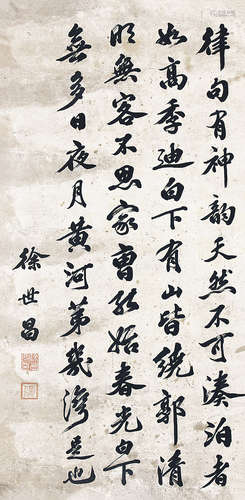 律句有神韵天然不可凑泊者
如高季迪白下有山皆绕郭清
明無客不思家曹能始春光白下
無多日夜月黄河第幾灣是也
徐世昌